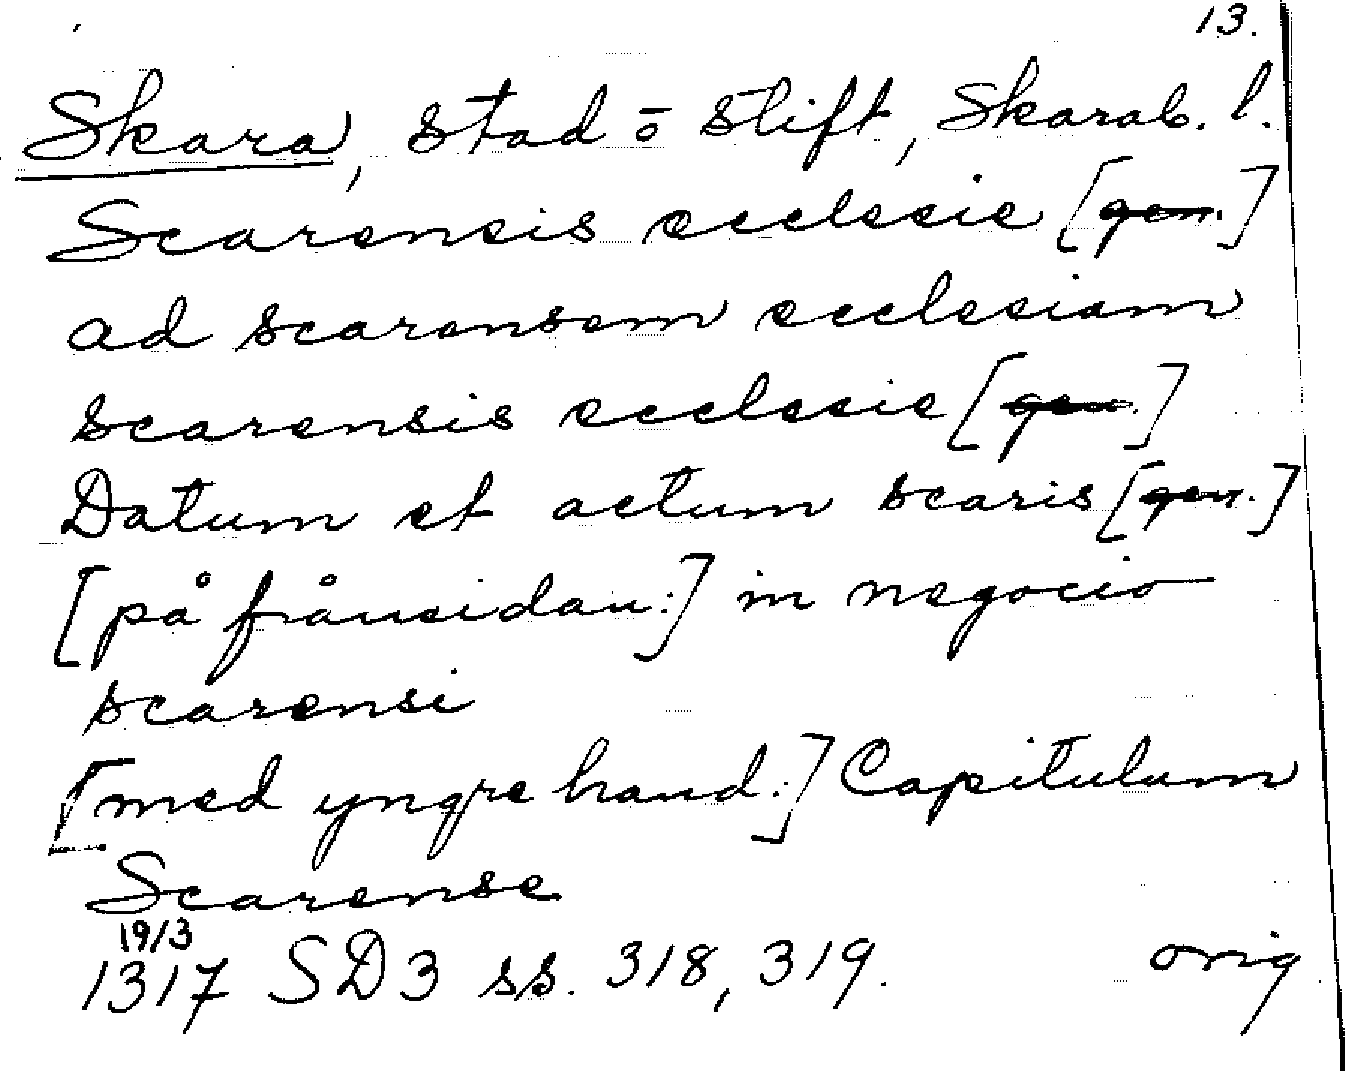 13.
Skara, stad o stift, Skarab. l.
Scarensis ecclesie [gen.]
ad scarensem ecclesiam
scarensis ecclesie [gen.]
Datum et actum scaris [gen.]
[på frånsidan:] in negocio
scarensi
[med yngre hand:] Capitulum
Scarense
19/3
1317 SD3 ss. 318, 319. orig